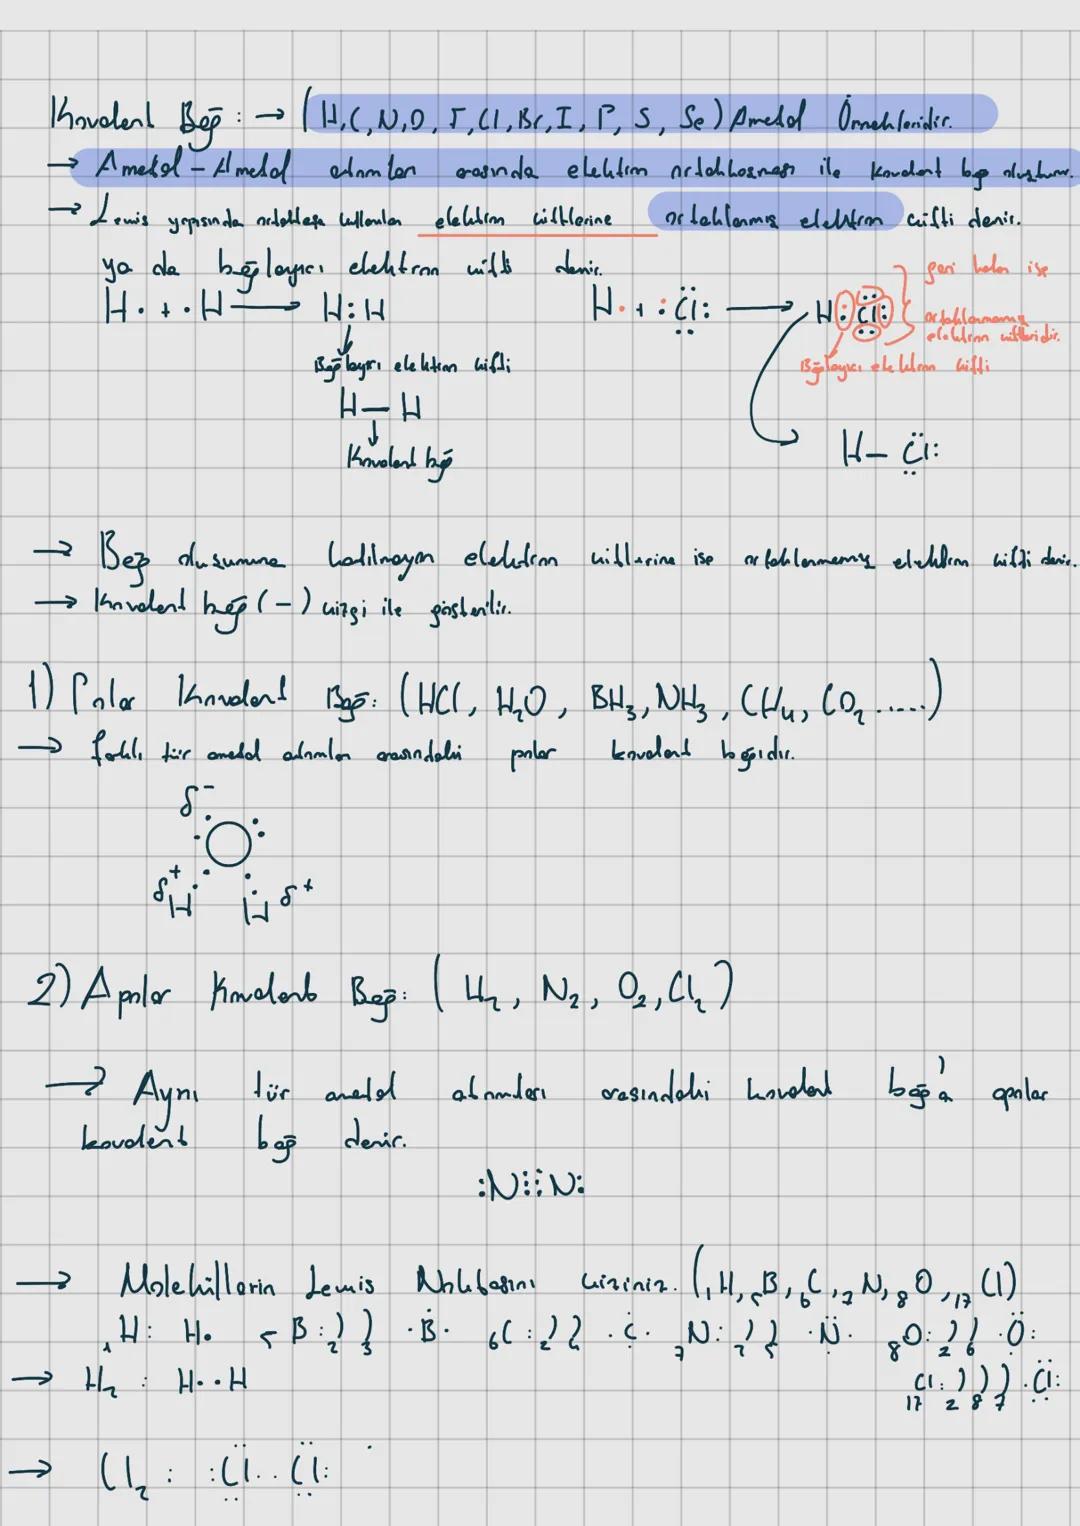 Kovalent Bağ: → (H, C, N, O, F, Cl, Br, I, P, S, Se) Ametal Örnekleridir.
→ Ametal - Ametal atomları arasında elektron ortaklaşması ile kovalent bağ oluşturur.
→ Lewis yapısında ortaklaşa kullanılan elektron çiftlerine ortaklanmış elektron çifti denir.
ya da bağlayıcı elektron çifti denir.
geri kalan ise
H· + ·H → H:H
H· + :Cl: → H:Cl:
ortaklanmamış
elektron çiftleridir.
Bağlayıcı elektron çifti
Bağlayıcı elektron çifti
H–H
Kovalent bağ
H–Cl:
→ Bağ oluşumuna katılmayan elektron çiftlerine ise ortaklanmamış elektron çifti denir.
→ Kovalent bağ (-) çizgi ile gösterilir.
1) Polar Kovalent Bağ: (HCl, H₂O, BH₃, NH₃, CH₄, CO₂ .....)
→ farklı tür ametal atomları arasındaki polar kovalent bağıdır.
δ⁻
O
δ⁺ H H δ⁺
2) Apolar Kovalent Bağ: (H₂, N₂, O₂, Cl₂)
→ Aynı tür ametal atomları arasındaki kovalent bağ'a apolar
kovalent bağ denir.
:N⋮⋮N:
→ Moleküllerin Lewis Noktasını çiziniz. (₁H, ₅B, ₆C, ₇N, ₈O, ₁₇Cl)
₁H: H· ₅B: )₂ )₃ ·B· ₆C: )₂ )₄ ·C· ₇N: )₂ )₅ ·N· ₈O: )₂ )₆ ·O:
→ H₂ : H··H
₁₇Cl: )₂ )₈ )₇ ·Cl:
→ Cl₂ : :Cl··Cl: